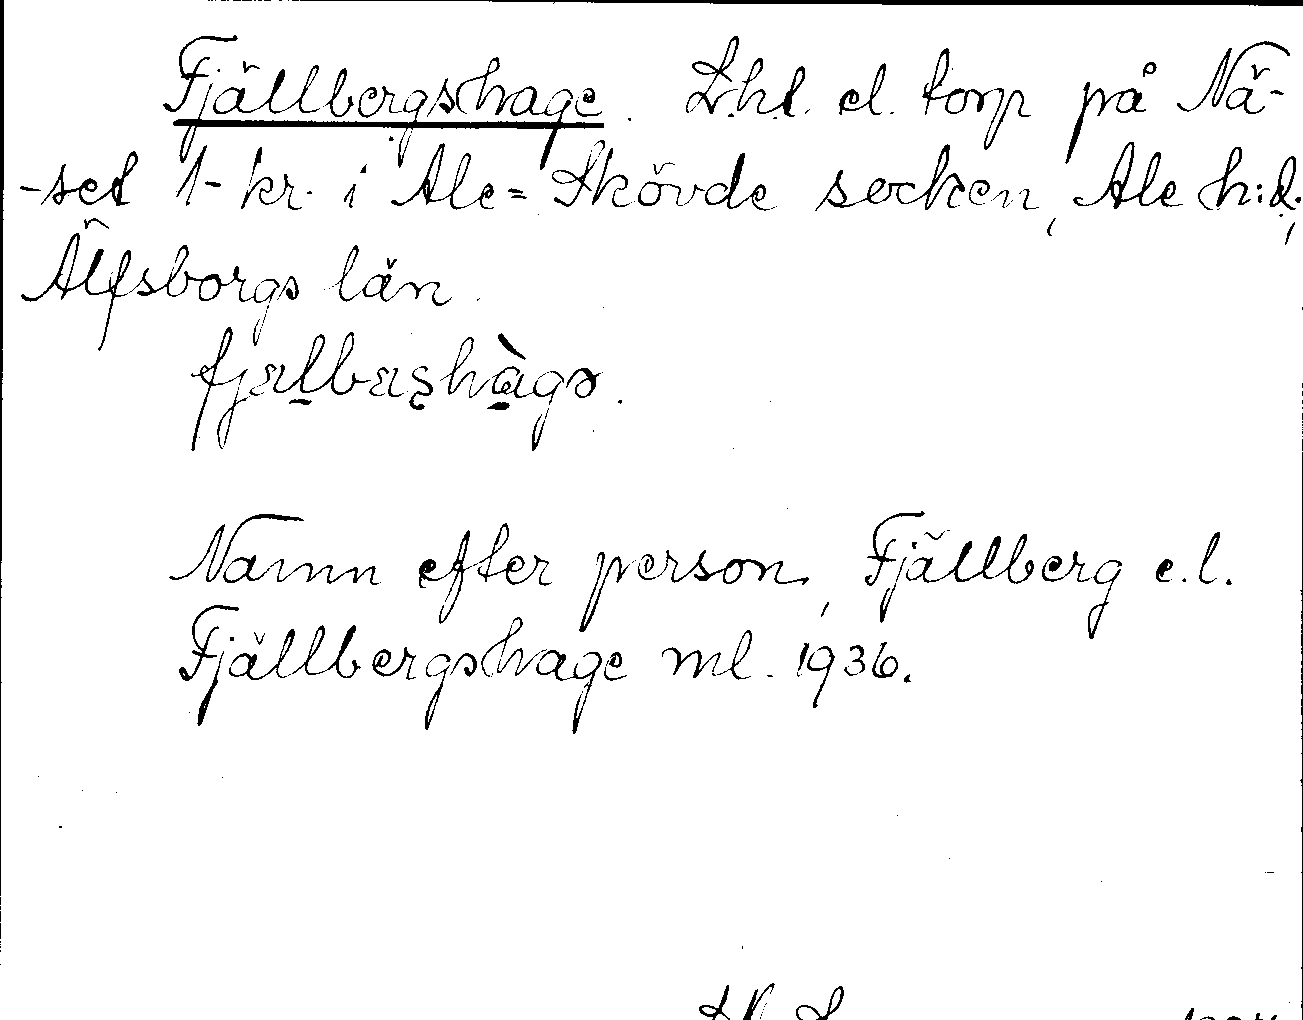 Fjällbergshage. Lht. el. torp på Nä-
-set 1-kr. i Ale=Skövde socken, Ale h:d.,
Älfsborgs län.
fjælbæʂhàgə.
Namn efter person, Fjällberg e.l.
Fjällbergshage ml. 1936.